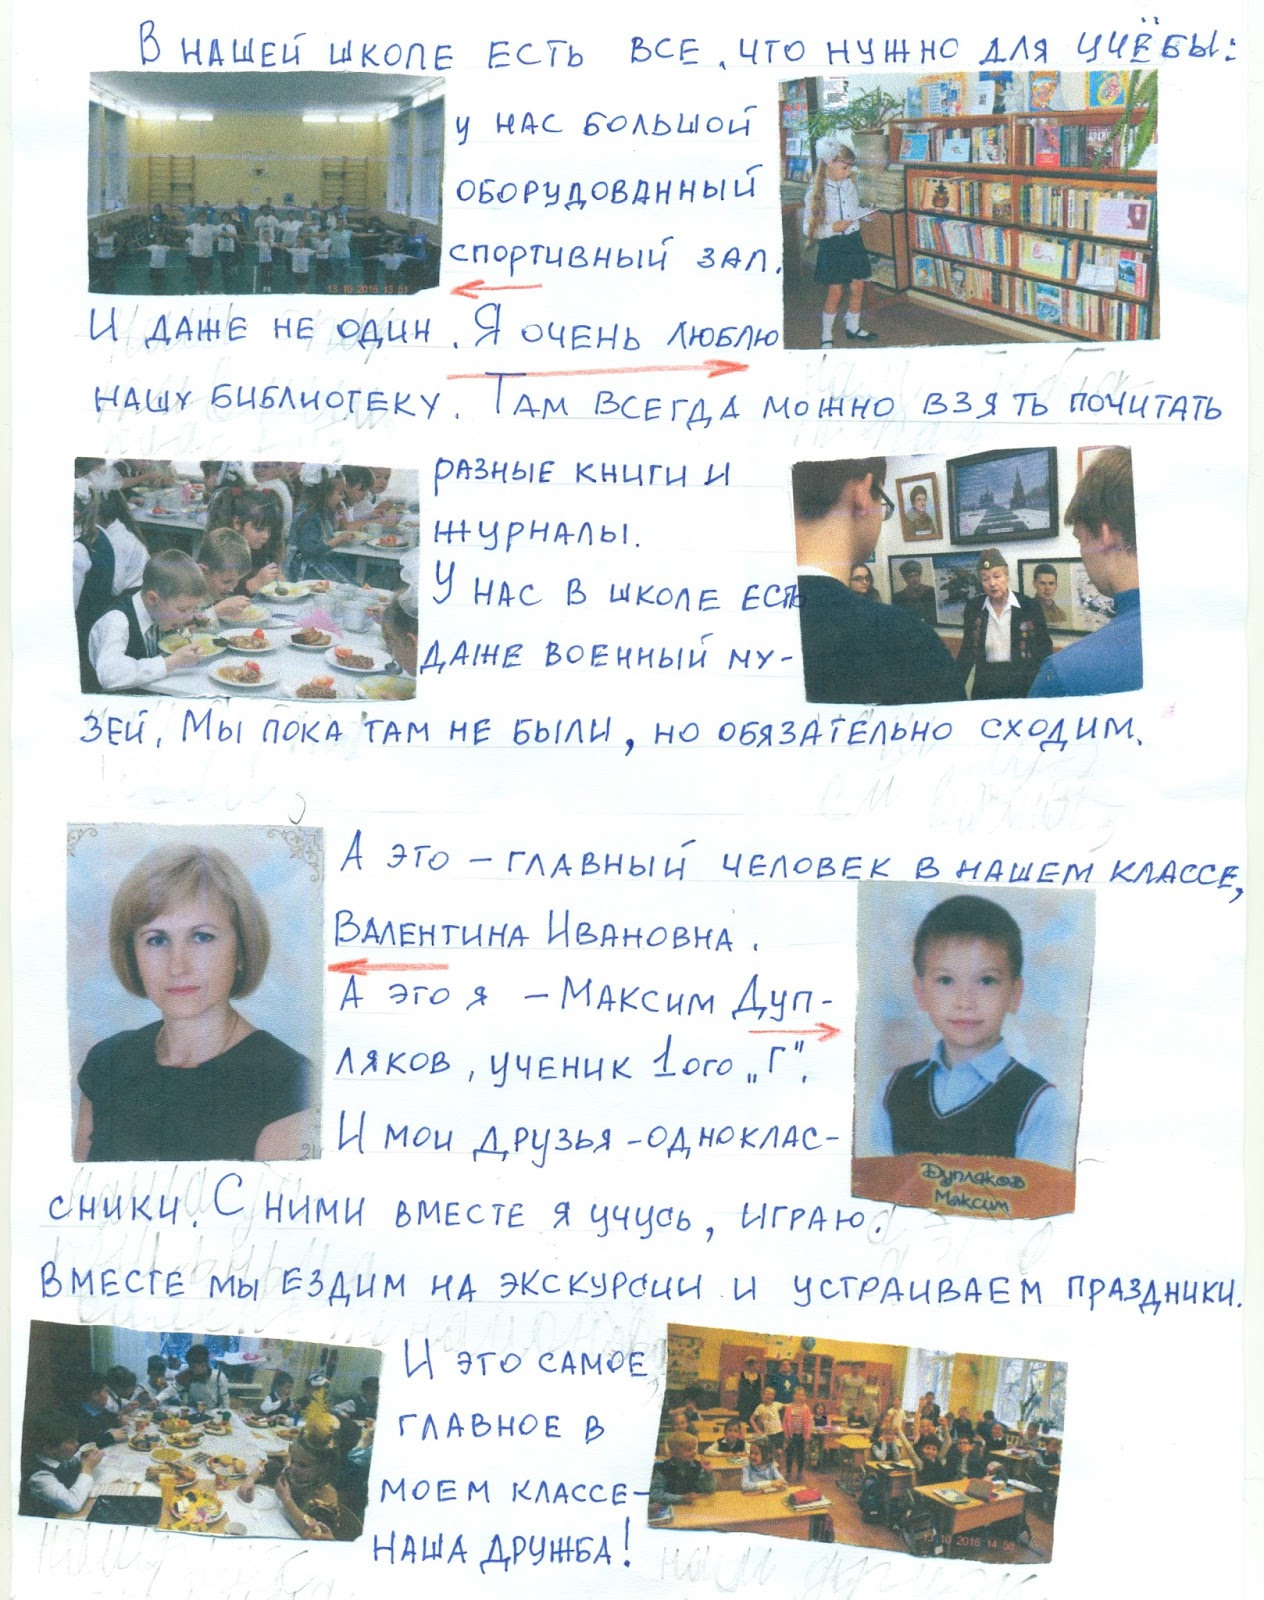 В НАШЕЙ ШКОЛЕ ЕСТЬ ВСЕ, ЧТО НУЖНО ДЛЯ УЧЁБЫ:
У НАС БОЛЬШОЙ
ОБОРУДОВАННЫЙ
СПОРТИВНЫЙ ЗАЛ.
13 10 2016 13 51
И ДАЖЕ НЕ ОДИН. Я ОЧЕНЬ ЛЮБЛЮ
НАШУ БИБЛИОТЕКУ. ТАМ ВСЕГДА МОЖНО ВЗЯТЬ ПОЧИТАТЬ
РАЗНЫЕ КНИГИ И
ЖУРНАЛЫ.
У НАС В ШКОЛЕ ЕСТЬ
ДАЖЕ ВОЕННЫЙ МУ-
ЗЕЙ. МЫ ПОКА ТАМ НЕ БЫЛИ, НО ОБЯЗАТЕЛЬНО СХОДИМ.
А ЭТО – ГЛАВНЫЙ ЧЕЛОВЕК В НАШЕМ КЛАССЕ,
ВАЛЕНТИНА ИВАНОВНА.
А ЭТО Я – МАКСИМ ДУП-
ЛЯКОВ, УЧЕНИК 1ОГО „Г".
И МОИ ДРУЗЬЯ - ОДНОКЛАС-
Дупляков
Максим
СНИКИ. С НИМИ ВМЕСТЕ Я УЧУСЬ, ИГРАЮ.
ВМЕСТЕ МЫ ЕЗДИМ НА ЭКСКУРСИИ И УСТРАИВАЕМ ПРАЗДНИКИ.
И ЭТО САМОЕ
ГЛАВНОЕ В
МОЕМ КЛАССЕ –
НАША ДРУЖБА!
13 10 2016 14 58